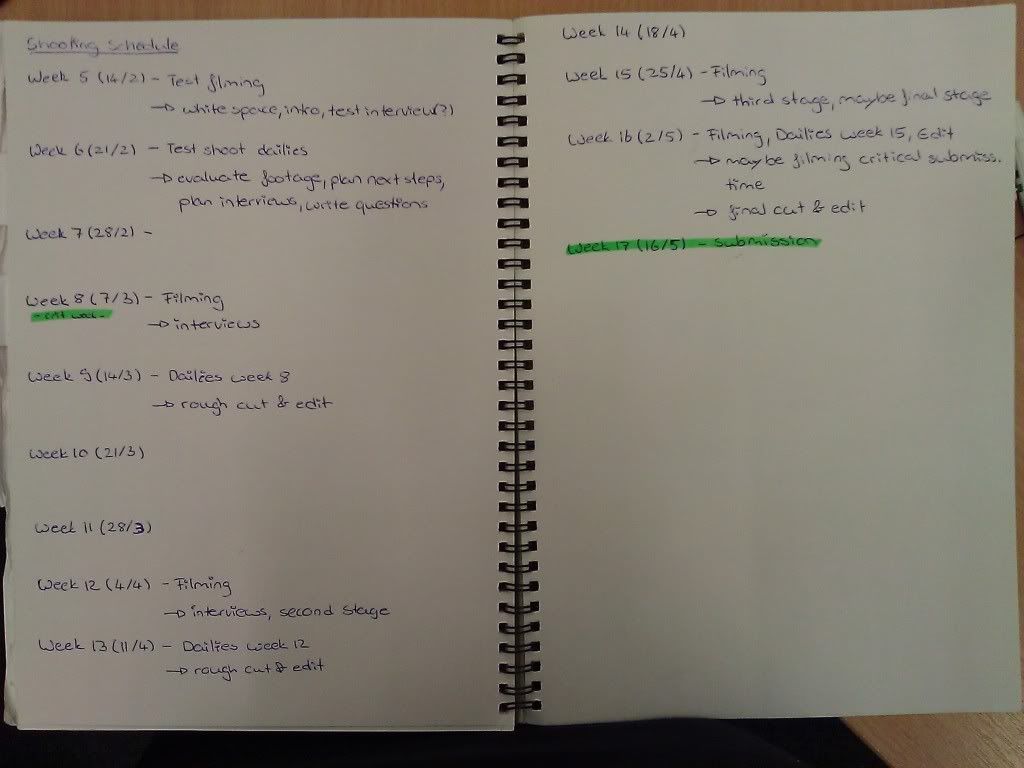 Shooting Schedule
Week 5 (14/2) - Test filming
→ white space, intro, test interview(?)
Week 6 (21/2) - Test shoot dailies
→ evaluate footage, plan next steps,
plan interviews, write questions
Week 7 (28/2) -
Week 8 (7/3) - Filming
→ interviews
Week 9 (14/3) - Dailies week 8
→ rough cut & edit
Week 10 (21/3)
Week 11 (28/3)
Week 12 (4/4) - Filming
→ interviews, second stage
Week 13 (11/4) - Dailies week 12
→ rough cut & edit
Week 14 (18/4)
Week 15 (25/4) - Filming
→ third stage, maybe final stage
Week 16 (2/5) - Filming, Dailies week 15, Edit
→ maybe filming critical submiss.
time
→ final cut & edit
Week 17 (16/5) - submission